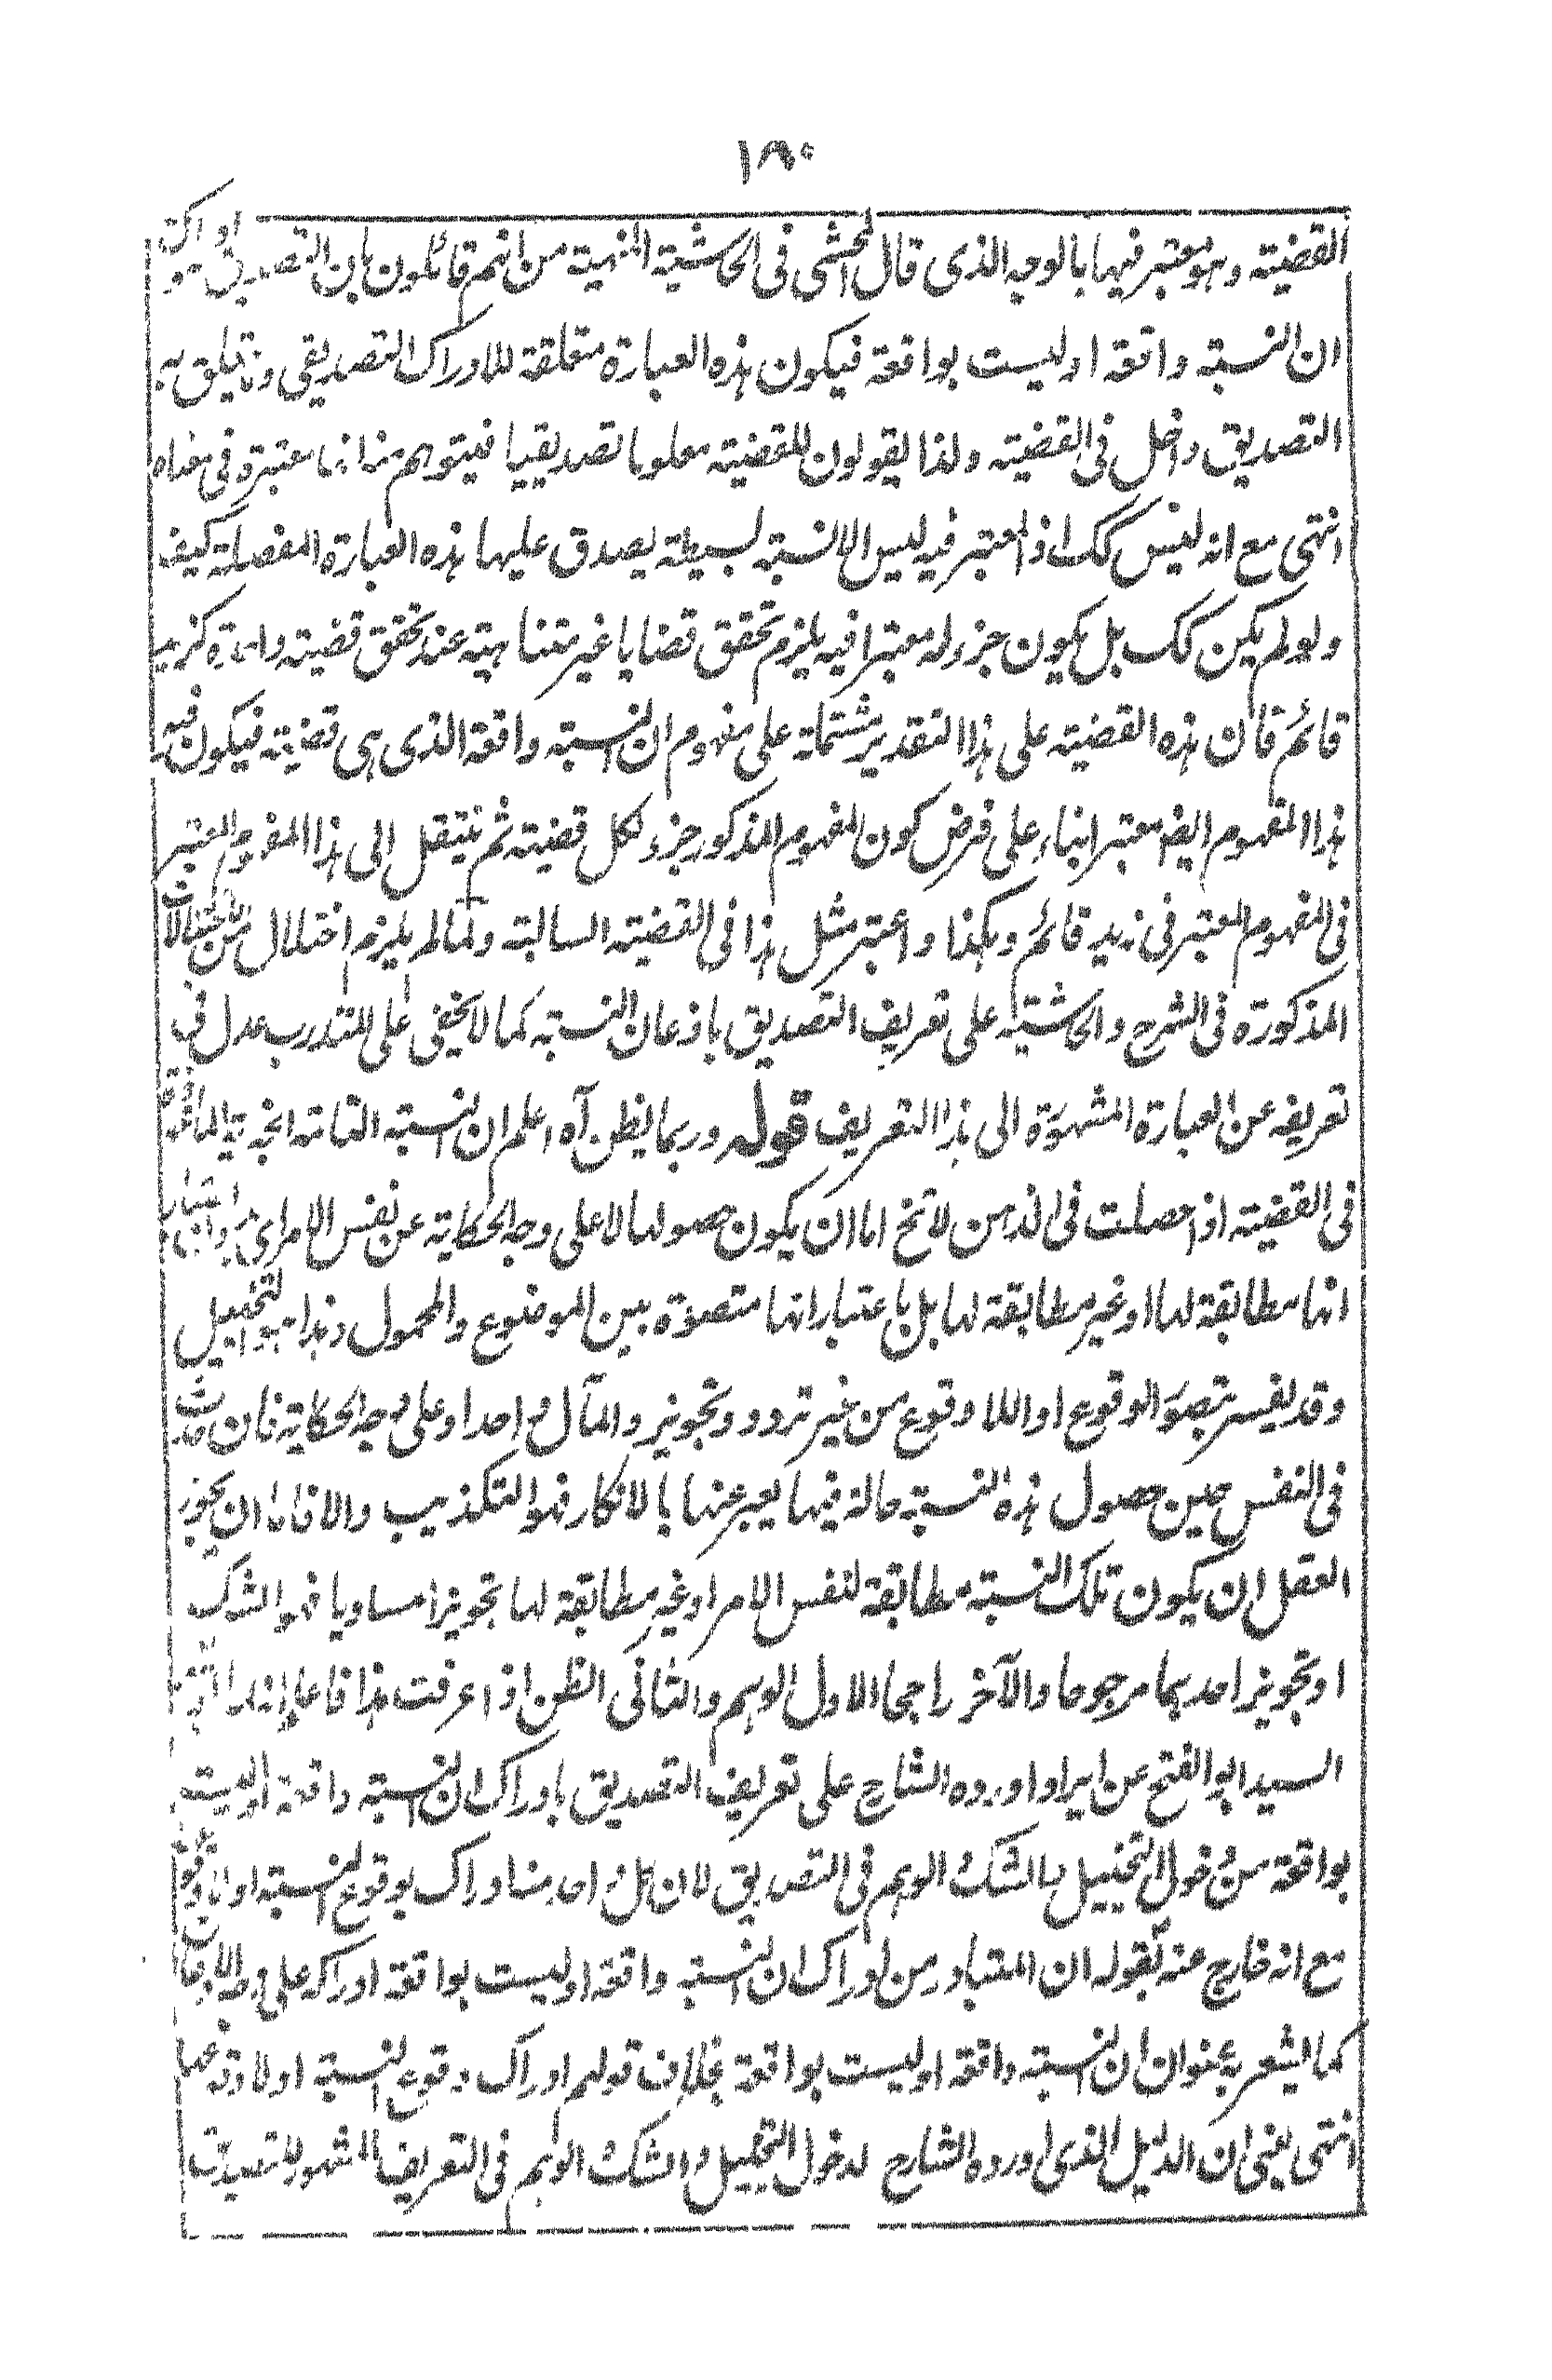 ١٨٠
القضية وهو معتبر فيها بالوجه الذى قال المحشى فى الحاشية المنهية من انهم قائلون بان التصديق هو ادراك
ان النسبة واقعة او ليست بواقعة فيكون هذه العبارة متعلقة للادراك التصديقى وما يتعلق به
التصديق داخل فى القضية ولذا يقولون للقضية معلوما تصديقيا فيتوهم من ذا انها معتبرة فى معناه
انتهى مع انه ليس كك اذ المعتبر فيه ليس الا نسبة بسيطة يصدق عليها هذه العبارة المفصلة كيف
ولو لم يكن كك بل يكون جزء له معتبرا فيه يلزم تحقق قضايا غير متناهية عند تحقق قضية واحدة كزيد
قائم فان هذه القضية على هذا التقدير مشتملة على مفهوم ان النسبة واقعة الذى هى قضية فيكون فيه
هذا المفهوم ايضا معتبرا بناء على فرض كون المفهوم المذكور جزء لكل قضية ثم ننتقل الى هذا المفهوم المعتبر
فى المفهوم المعتبر فى زيد قائم وهكذا واعتبر مثل هذا فى القضية السالبة ولما لم يلزم اختلال من الاختلالات
المذكورة فى الشرح والحاشية على تعريف التصديق باذعان النسبة كما لا يخفى على المتدرب عدل فى
تعريفه عن العبارة المشهورة الى هذا التعريف قوله وربما يظن آه اعلم ان النسبة التامة الخبرية الماخوذة
فى القضية اذا حصلت فى الذهن لا تخ اما ان يكون حصولها لا على وجه الحكاية عن نفس الامر اى
انها مطابقة لها او غير مطابقة لها بل باعتبار انها متصورة بين الموضوع والمحمول وهذا هو التخييل
وقد يفسر بتصور الوقوع او اللا وقوع من غير تردد وتجويز والمآل واحد او على وجه الحكاية فان حدث
فى النفس حين حصول هذه النسبة حالة فيها يعبر عنها بالانكار فهو التكذيب والا فاما ان يجوز
العقل ان يكون تلك النسبة مطابقة لنفس الامر او غير مطابقة لها تجويزا مساويا فهو الشك
او تجويز احدهما مرجوحا والآخر راجحا الاول الوهم والثانى الظن اذا عرفت هذا فاعلم انه لما
السيد ابو الفتح عن ايراد اورده الشارح على تعريف التصديق بادراك ان النسبة واقعة او ليست
بواقعة من دخول التخييل والشك والوهم فى التصديق لان كل واحد منها ادراك بوقوع النسبة او لا وقوعها
مع انه خارج عنه بقوله ان المتبادر من ادراك ان النسبة واقعة او ليست بواقعة ادراكه على وجه الاذعان
كما يشعر به عنوان ان النسبة واقعة او ليست بواقعة بخلاف قولهم ادراك وقوع النسبة او لا وقوعها
انتهى يعنى ان الدليل الذى اورده الشارح لدخول التخييل والشك والوهم فى التعريف المشهور للتصديق